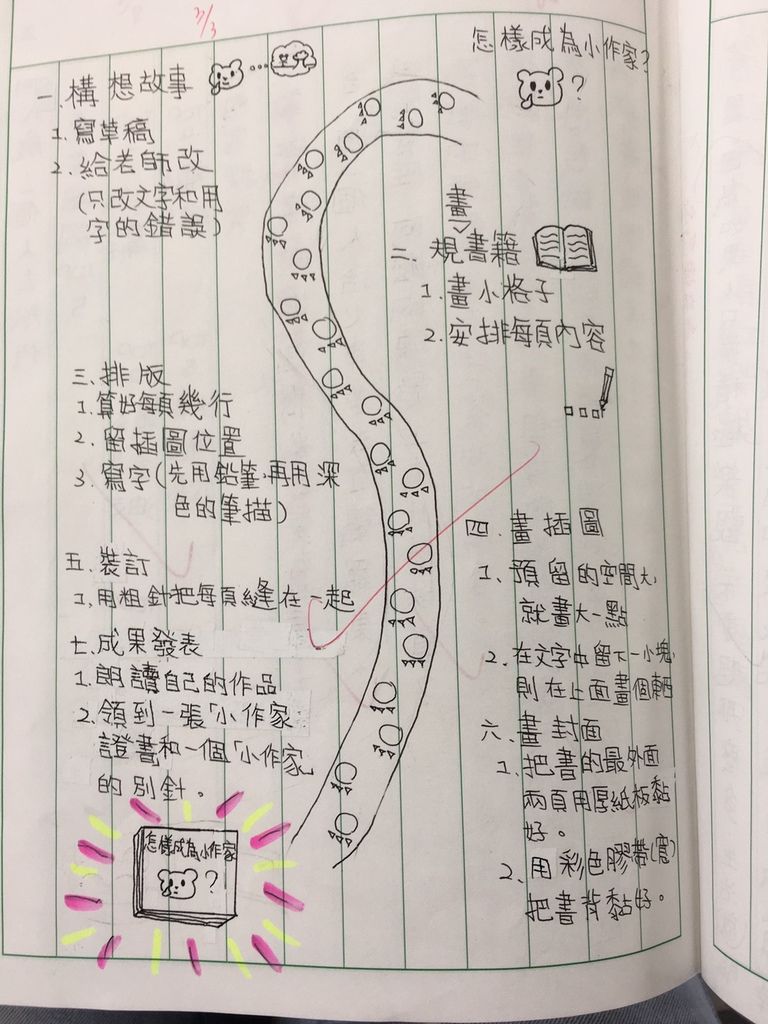 3/3
怎樣成為小作家?
?
一.構想故事
1.寫草稿
2.給老師改
(只改文字和用
字的錯誤)
畫
二.規書籍
1.畫小格子
2.安排每頁內容
三.排版
1.算好每頁幾行
2.留插圖位置
3.寫字(先用鉛筆,再用深
色的筆描)
四.畫插圖
1.預留的空間大,
就畫大一點
2.在文字中留下一小塊,
則在上面畫個
五.裝訂
1.用粗針把每頁縫在一起
六.畫封面
1.把書的最外面
兩頁用厚紙板黏
好。
2.用彩色膠帶(寬)
把書背黏好。
七.成果發表
1.朗讀自己的作品
2.領到一張「小作家
證書和一個「小作家
的別針。
怎樣成為小作家
?